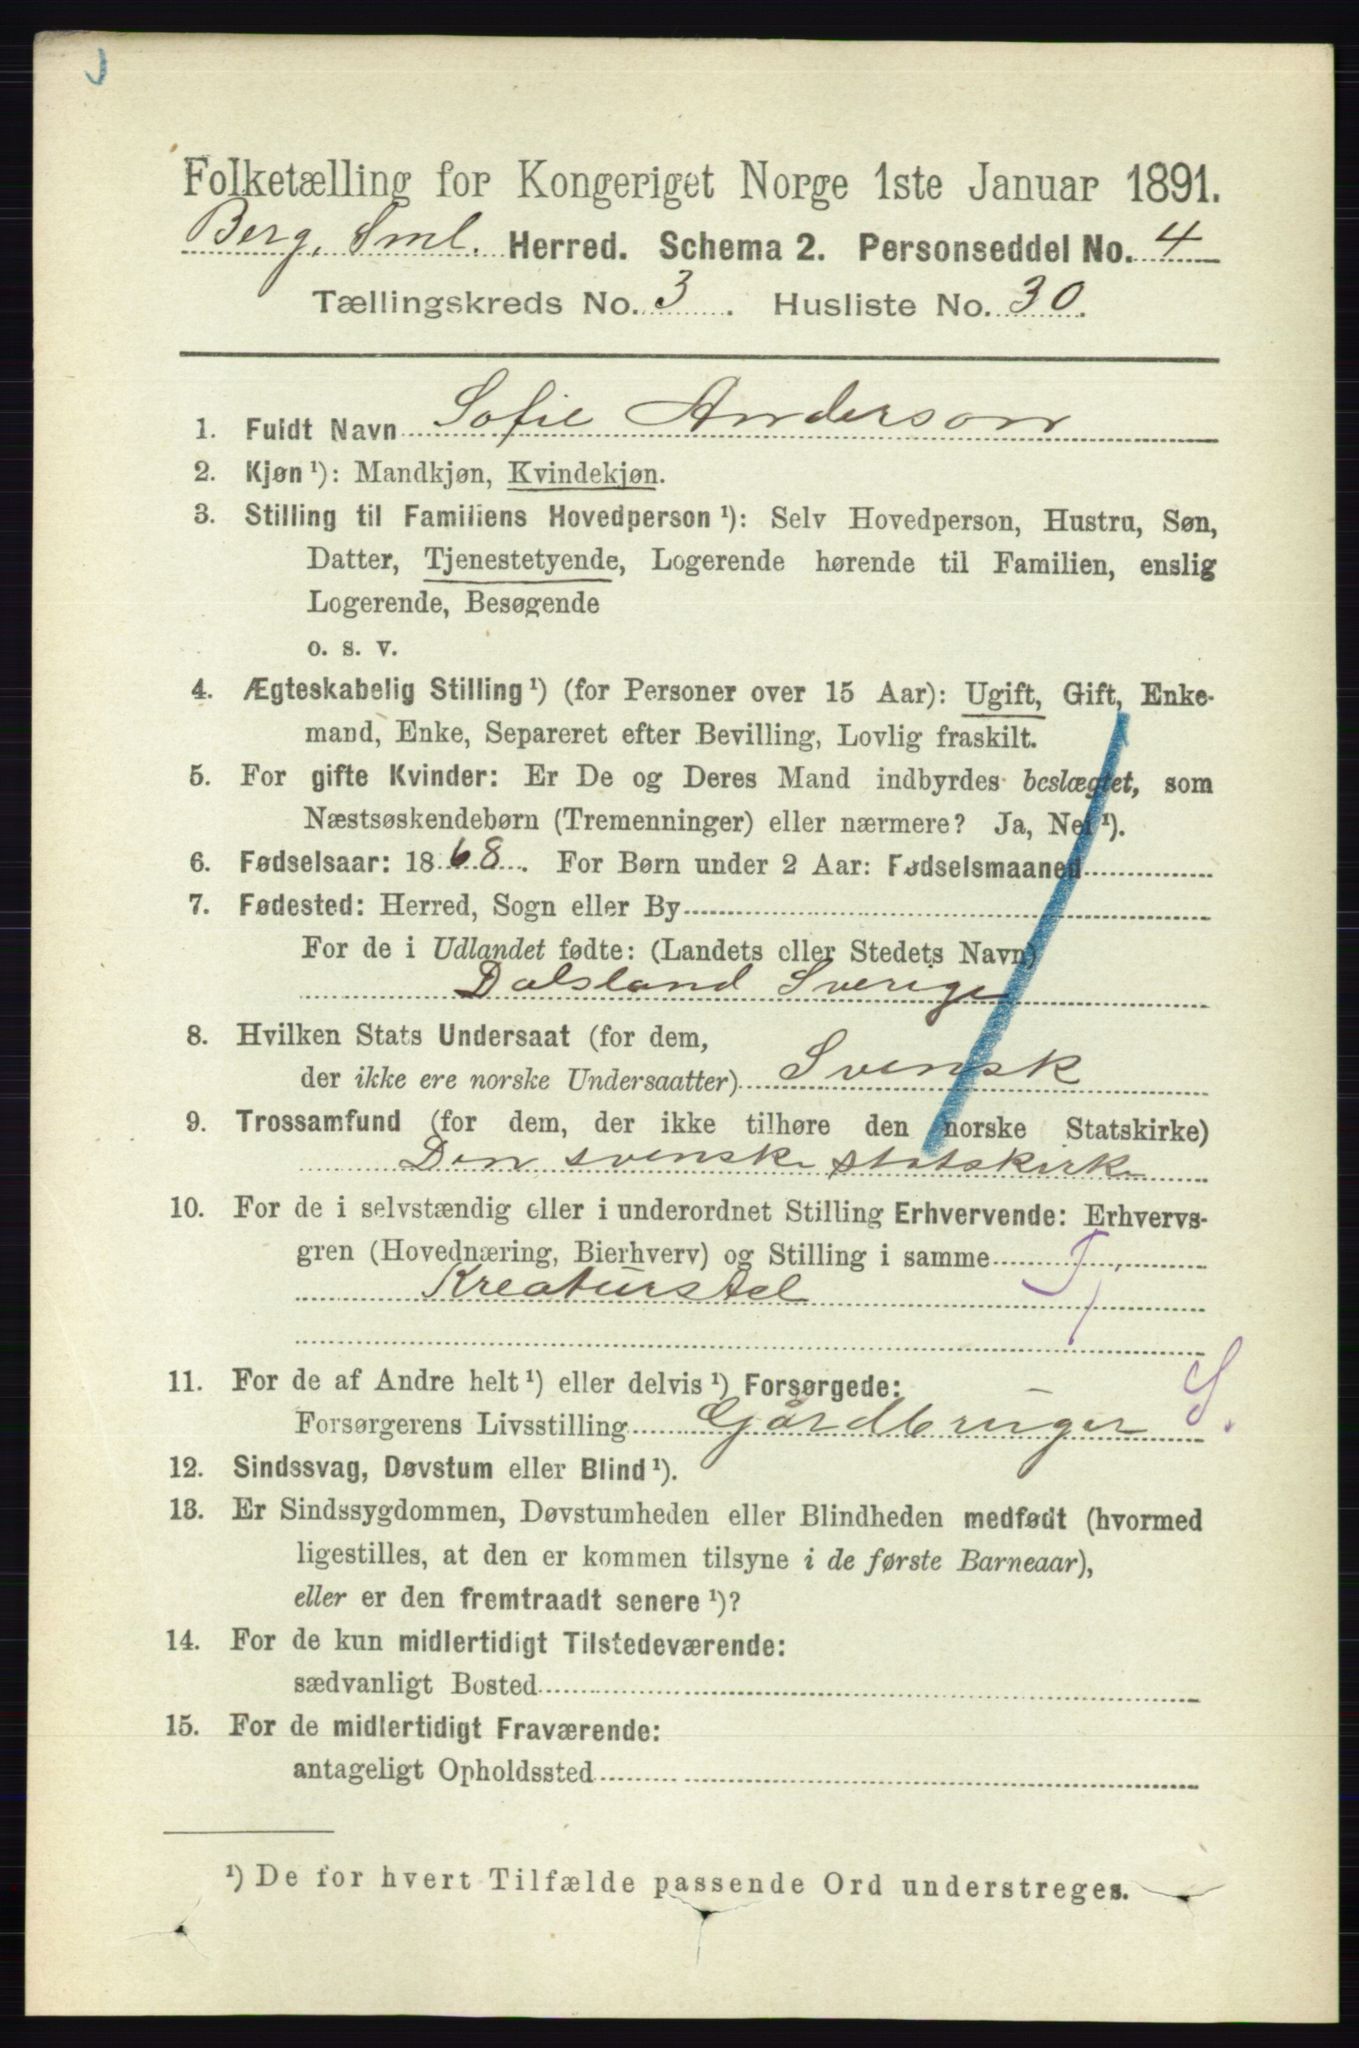 Folketælling for Kongeriget Norge 1ste Januar 1891.
Berg, Sml. Herred. Schema 2. Personseddel No. 4
Tællingskreds No. 3. Husliste No. 30.
1. Fuldt Navn Sofie Anderson
2. Kjøn ¹): Mandkjøn, Kvindekjøn.
3. Stilling til Familiens Hovedperson ¹): Selv Hovedperson, Hustru, Søn,
Datter, Tjenestetyende, Logerende hørende til Familien, enslig
Logerende, Besøgende
o. s. v.
4. Ægteskabelig Stilling ¹) (for Personer over 15 Aar): Ugift, Gift, Enke-
mand, Enke, Separeret efter Bevilling, Lovlig fraskilt.
5. For gifte Kvinder: Er De og Deres Mand indbyrdes beslægtet, som
Næstsøskendebørn (Tremenninger) eller nærmere? Ja, Nei ¹).
6. Fødselsaar: 1868. For Børn under 2 Aar: Fødselsmaaned
7. Fødested: Herred, Sogn eller By
For de i Udlandet fødte: (Landets eller Stedets Navn)
Dalsland Sverige
8. Hvilken Stats Undersaat (for dem,
der ikke ere norske Undersaatter) Svensk
9. Trossamfund (for dem, der ikke tilhøre den norske Statskirke)
Den svenske statskirke
10. For de i selvstændig eller i underordnet Stilling Erhvervende: Erhvervs-
gren (Hovednæring, Bierhverv) og Stilling i samme
Kreaturstel
11. For de af Andre helt ¹) eller delvis ¹) Forsørgede:
Forsørgerens Livsstilling Gårdbruger S.
12. Sindssvag, Døvstum eller Blind ¹).
13. Er Sindssygdommen, Døvstumheden eller Blindheden medfødt (hvormed
ligestilles, at den er kommen tilsyne i de første Barneaar),
eller er den fremtraadt senere ¹)?
14. For de kun midlertidigt Tilstedeværende:
sædvanligt Bosted
15. For de midlertidigt Fraværende:
antageligt Opholdssted
¹) De for hvert Tilfælde passende Ord understreges.